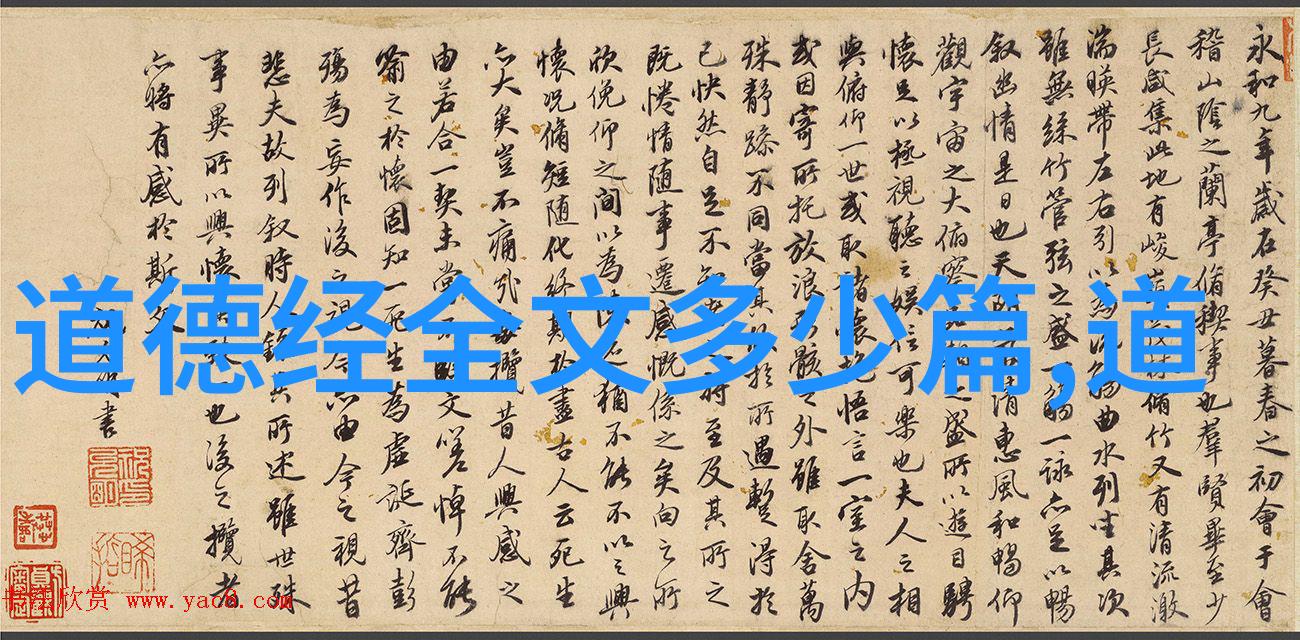 永和九年歲在癸丑暮春之初會于會
稽山陰之蘭亭脩稧事也羣賢畢至少
長咸集此地有峻嶺林脩竹又有清流激
湍暎帶左右引以為流觴曲水列坐其次
雖無絲竹管弦之盛一觴一詠亦足以暢
叙幽情是日也天清惠風和暢仰
觀宇宙之大俯察之盛所以遊目騁
懷足以極視聽之娛信可樂也夫人之相
與俯仰一世或取諸懷抱悟言一室之內
或因寄所托放浪骸之外雖取舍萬
殊静躁不同當其於所遇暫得於
己快然自足不知之將至及其所之
既惓情随事遷感慨係之矣向之所
欣俛仰之間以為猶不能不以之興
懷况脩短随化終期於盡古人云死生
亦大矣豈不痛哉每攬昔人興感之
由若合一契未嘗不文嗟悼不能
喻之於懷固知一死生為虛誕齊彭
殤為妄作後之視今亦由今之視昔
悲夫故列叙時人所述雖世殊
事異所以興懷也後之攬者
亦將有感於斯文
書
道德经全文多少篇,道
欣赏 www.yac8.com